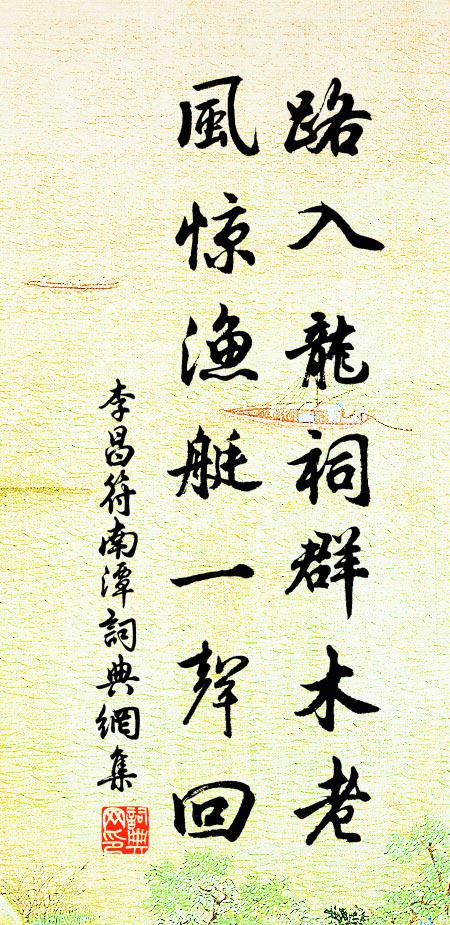 路入龍祠群木老
風惊漁艇一聲回
李昌符南潭詞典網集
詞典网印